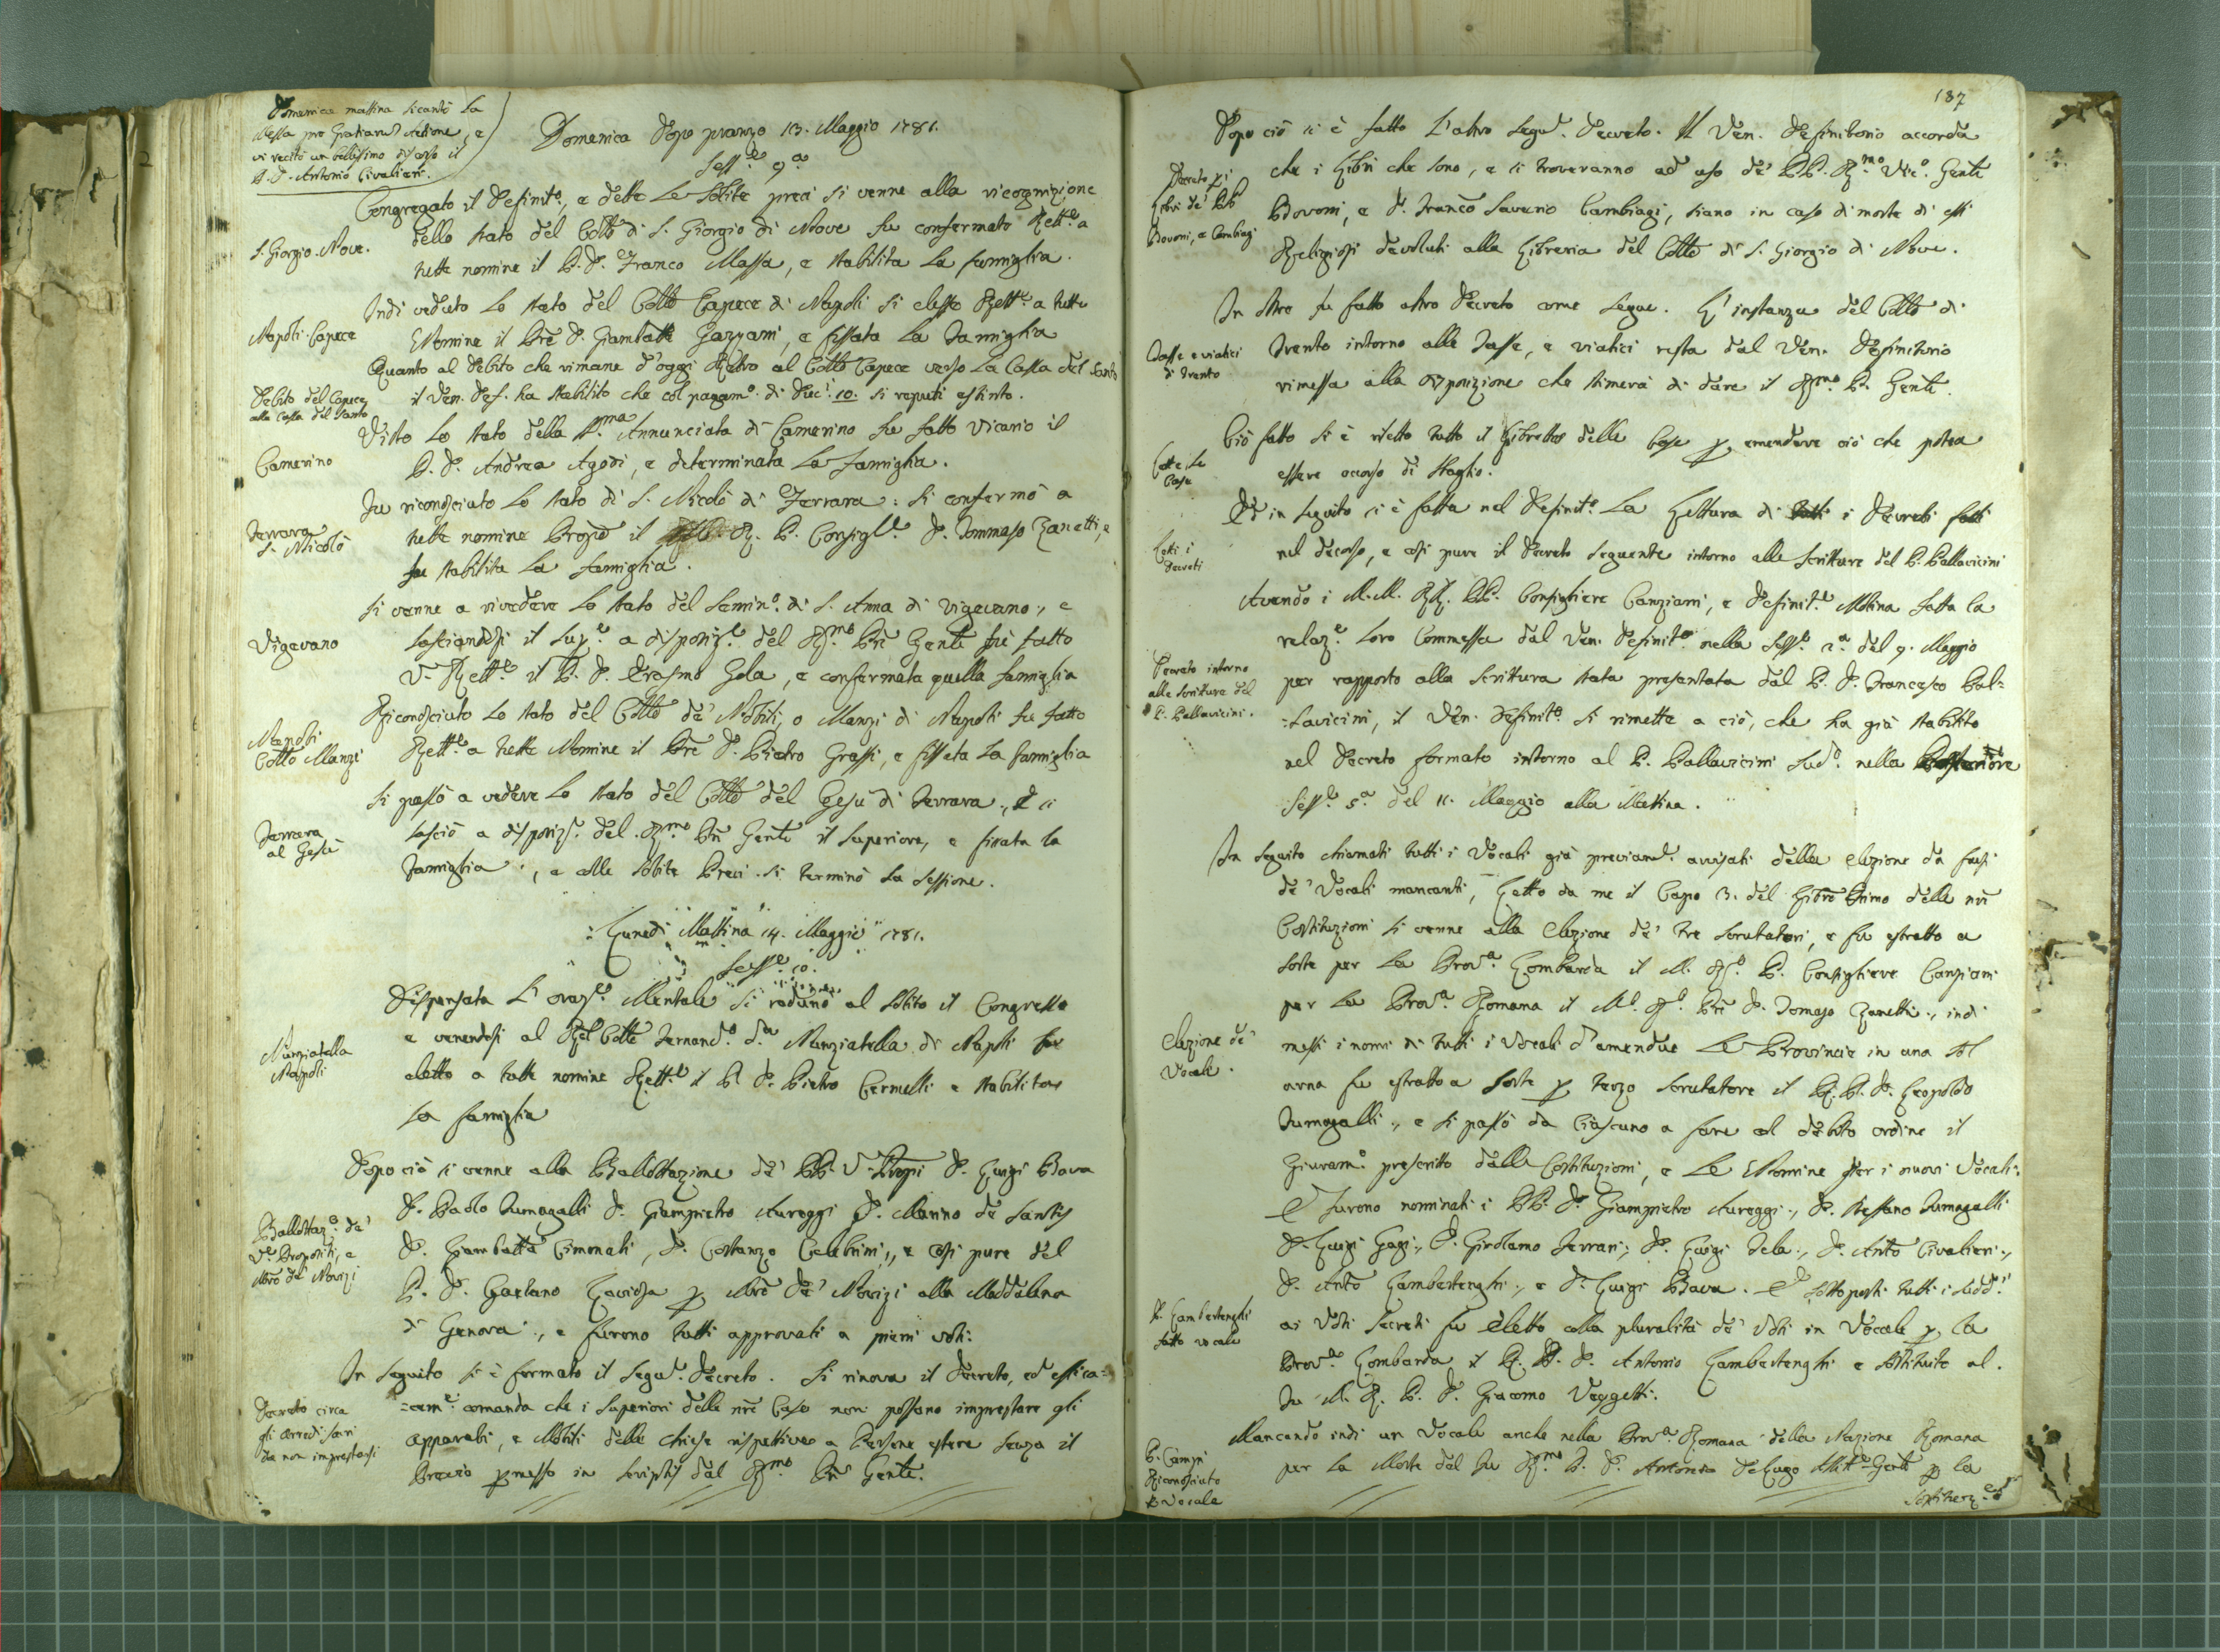 Domenica mattina si cantò la
Messa pro Gratiarũ Actione, e
vi recitò un bellissimo discorso il
P. D. Antonio Civalieri.
Domenica Dopo pranzo 13. Maggio 1781.
Sess.e 9.a
Congregato il Definit.o, e dette le solite preci si venne alla ricognizione
S. Giorgio Nove.
dello stato del Coll.o di S. Giorgio di Nove fu confermato Rett.e a
tutte nomine il P. D. Franco Massa, e stabilita la famiglia.
Indi veduto lo stato del Coll.o Capece di Napoli si elesse Rett.e a tutte
Napoli Capece
Nomine il Pre D. Giambatta Gazzani, e fissata la Famiglia
Quanto al Debito che rimane d'oggi Retro al Collo Capece verso la Cassa del Santo
Debito del Capece
alla Cassa del Santo
il Ven. Def. ha stabilito che col pagam.o di Duc.i 10. si reputi estinto.
Visto lo stato della SS.ma Annunciata di Camerino fu fatto Vicario il
Camerino
P. D. Andrea Agodi, e determinata la famiglia.
Fu riconosciuto lo stato di S. Nicolò di Ferrara: si confermò a
Ferrara
S. Nicolò
tutte nomine Propto il R. P. Consigl.e D. Tommaso Zanetti, e
fu stabilita la famiglia.
Si venne a rivedere lo stato del Semin.o di S. Anna di Vigevano, e
Vigevano
lasciandosi il Sup.e a disposiz.e del R.mo Pre Genle fu fatto
V. Rett.e il P. D. Erasmo Gola, e confermata quella famiglia
Riconosciuto lo stato del Collo de' Nobili, o Manzi di Napoli fu fatto
Collo Manzi
Rett.e a tutte Nomine il Pre D. Pietro Grassi, e fissata la famiglia
Si passò a vedere lo stato del Collo del Gesù di Ferrara, e si
Ferrara
al Gesù
lasciò a disposiz.e del R.mo Pre Genle il Superiore, e fissata la
Famiglia, e colle solite Preci si terminò la sessione.
Lunedì Mattina 14. Maggio 1781.
Sess.e 10.
Dispensata l'oraz.e Mentale si radunò al solito il Congresso
e venendosi al Rl Collo Fernand.o d.a Nunziatella di Napoli fu
Nunziatella
Napoli
eletto a tutte nomine Rett.e il P. D. Pietro Cermelli e stabilita
la famiglia
Dopo ciò si venne alla Ballottazione de' PP. V. Propi D. Luigi Bava
D. Paolo Fumagalli D. Giampietro Aureggi D. Marino de Santis
Ballottaz.e de'
V. Propositi, e
Mro de' Novizi
D. Giambatta Cimonati, D. Costanzo Celebrini, e così pure del
P. D. Gaetano Laviosa p Mro de' Novizi alla Maddalena
di Genova, e furono tutti approvati a pieni voti.
In seguito si è formato il segu.e Decreto. Si rinova il Decreto, ed effica=
Decreto circa
gli arredi sacri
da non imprestarsi
=cem.e comanda che i Superiori delle nre Case non possano imprestare gli
apparati, e Mobili delle Chiese rispettive a Persone estere senza il
Previo pmesso in scriptis dal R.mo Pre Genle.
187
Dopo ciò si è fatto l'altro segu.e Decreto. Il Ven. Definitorio accorda
Decreto p i
Libri de' PP.
Bovoni, e Cambiagi
che i Libri che sono, e si troveranno ad uso de' PP. R.mo Vic.o Genle
Bovoni, e D. Franco Saverio Cambiagi, siano in caso di morte di essi
Religiosi devoluti alla Libreria del Collo di S. Giorgio di Nove.
In oltre fu fatto altro Decreto come segue. L'instanza del Collo di
Tasse e viatici
di Trento
Trento intorno alle Tasse, e viatici resta dal Ven. Definitorio
rimessa alla disposizione che stimerà di dare il R.mo P. Genle.
Ciò fatto si è riletto tutto il Libretto delle Case p emendare ciò che potea
Lette le
Case
essere occorso di sbaglio.
Ed in seguito si è fatta nel Definit.o la Lettura di tutti i Decreti fatti
Letti i
Decreti
nel decorso, e così pure il Decreto seguente intorno alle Scritture del P. Pallavicini
Avendo i M.M. RR. PP. Consigliere Canziani, e Definit.e Molina fatta la
relaz.e loro Commessa dal Ven. Definit.o nella Sess.e 2.a del 9. Maggio
Decreto intorno
alle Scritture del
P. Pallavicini.
per rapporto alla Scrittura stata presentata dal P. D. Francesco Pal=
=lavicini, il Ven. Definit.o si rimette a ciò, che ha già stabilito
nel Decreto formato intorno al P. Pallavicini sud.o nella
Sess.e 5.a del 11. Maggio alla Mattina.
In seguito chiamati tutti i Vocali già previam.e avvisati della elezione da farsi
de' Vocali mancanti, Letto da me il Capo 3. del Libro Primo delle nre
Costituzioni si venne alla elezione de' tre scrutatori, e fu estratto a
sorte per la Prov.a Lombarda il M. R.o P. Consigliere Canziani
per la Prov.a Romana il M.o R.o Pre D. Tomaso Zanetti, indi
Elezione de'
Vocali.
messi i nomi di tutti i Vocali d'amendue le Provincie in una sol
urna fu estratto a sorte p terzo scrutatore il R. P. D. Leopoldo
Fumagalli, e si passò da Ciascuno a fare col debito ordine il
Giuram.o prescritto dalle Costituzioni, e le Nomine per i nuovi Vocali:
E furono nominati i PP. D. Giampietro Aureggi, D. Stefano Fumagalli
D. Luigi Gagi, D. Girolamo Ferrari, D. Luigi Tela, D. Anto Civalieri,
D. Anto Lambertenghi, e D. Luigi Bava. E sottoposti tutti i sudd.i
P. Lambertenghi
fatto vocale
ai Voti secreti fu eletto colla pluralità de' Voti in Vocale p la
Prov.a Lombarda il R. P. D. Antonio Lambertenghi e sostituito al
Fu M. R. P. D. Giacomo Vaggetti.
Mancando indi un Vocale anche nella Prov.a Romana della Nazione Romana
P. Campi
Riconosciuto
p Vocale
per la Morte del Fu R.mo P. D. Antonio DeLugo Genle p la